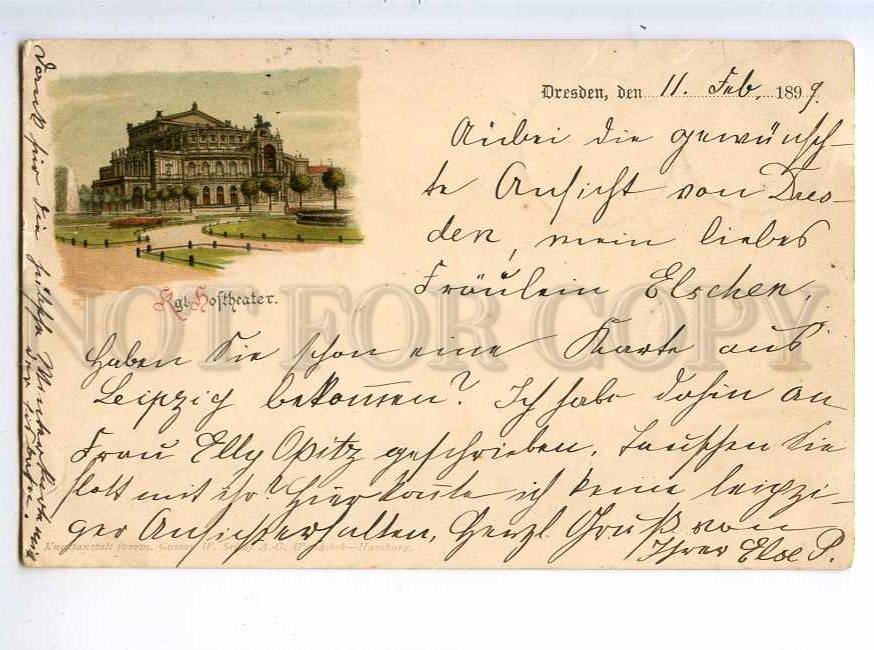 Dresden, den 11. Feb. 1899.
Kgl. Hoftheater.
Anbei die gewünsch-
te Ansicht von Dres-
den, mein liebes
Fräulein Elschen.
Haben Sie schon eine Karte aus
Leipzig bekommen? Ich habe dahin an
Frau Elly Opitz geschrieben. Tauschen Sie
flott mit ihr? Hier konnte ich keine leipzi-
ger Ansichterhalten. Herzl. Gruß von
Ihrer Else P.
Dank für die hübsche
Kunstanstalt (vorm. Gustav W. Seitz) A.-G. Wandsbek—Hamburg.
NOT FOR COPY